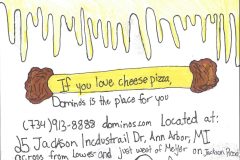 If you love cheese pizza,
Dominos is the place for you
(734)913-8888 dominos.com Located at:
Jackson Industrail Dr, Ann Arbor, MI
across from Lower and just west of Meijer on Jackson Road